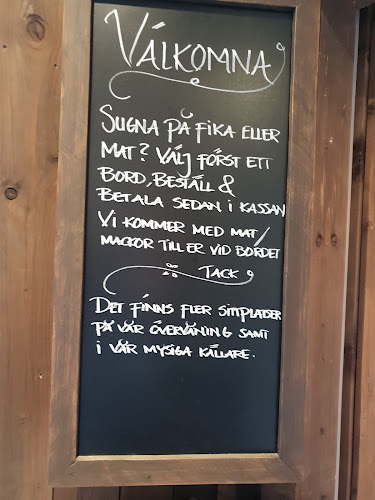 VÄLKOMNA
SUGNA PÅ FIKA ELLER
MAT? VÄLJ FÖRST ETT
BORD, BESTÄLL &
BETALA SEDAN I KASSAN
VI KOMMER MED MAT/
MACKOR TILL ER VID BORDET
TACK
DET FINNS FLER SITTPLATSER
PÅ VÅR ÖVERVÅNING SAMT
I VÅR MYSIGA KÄLLARE.